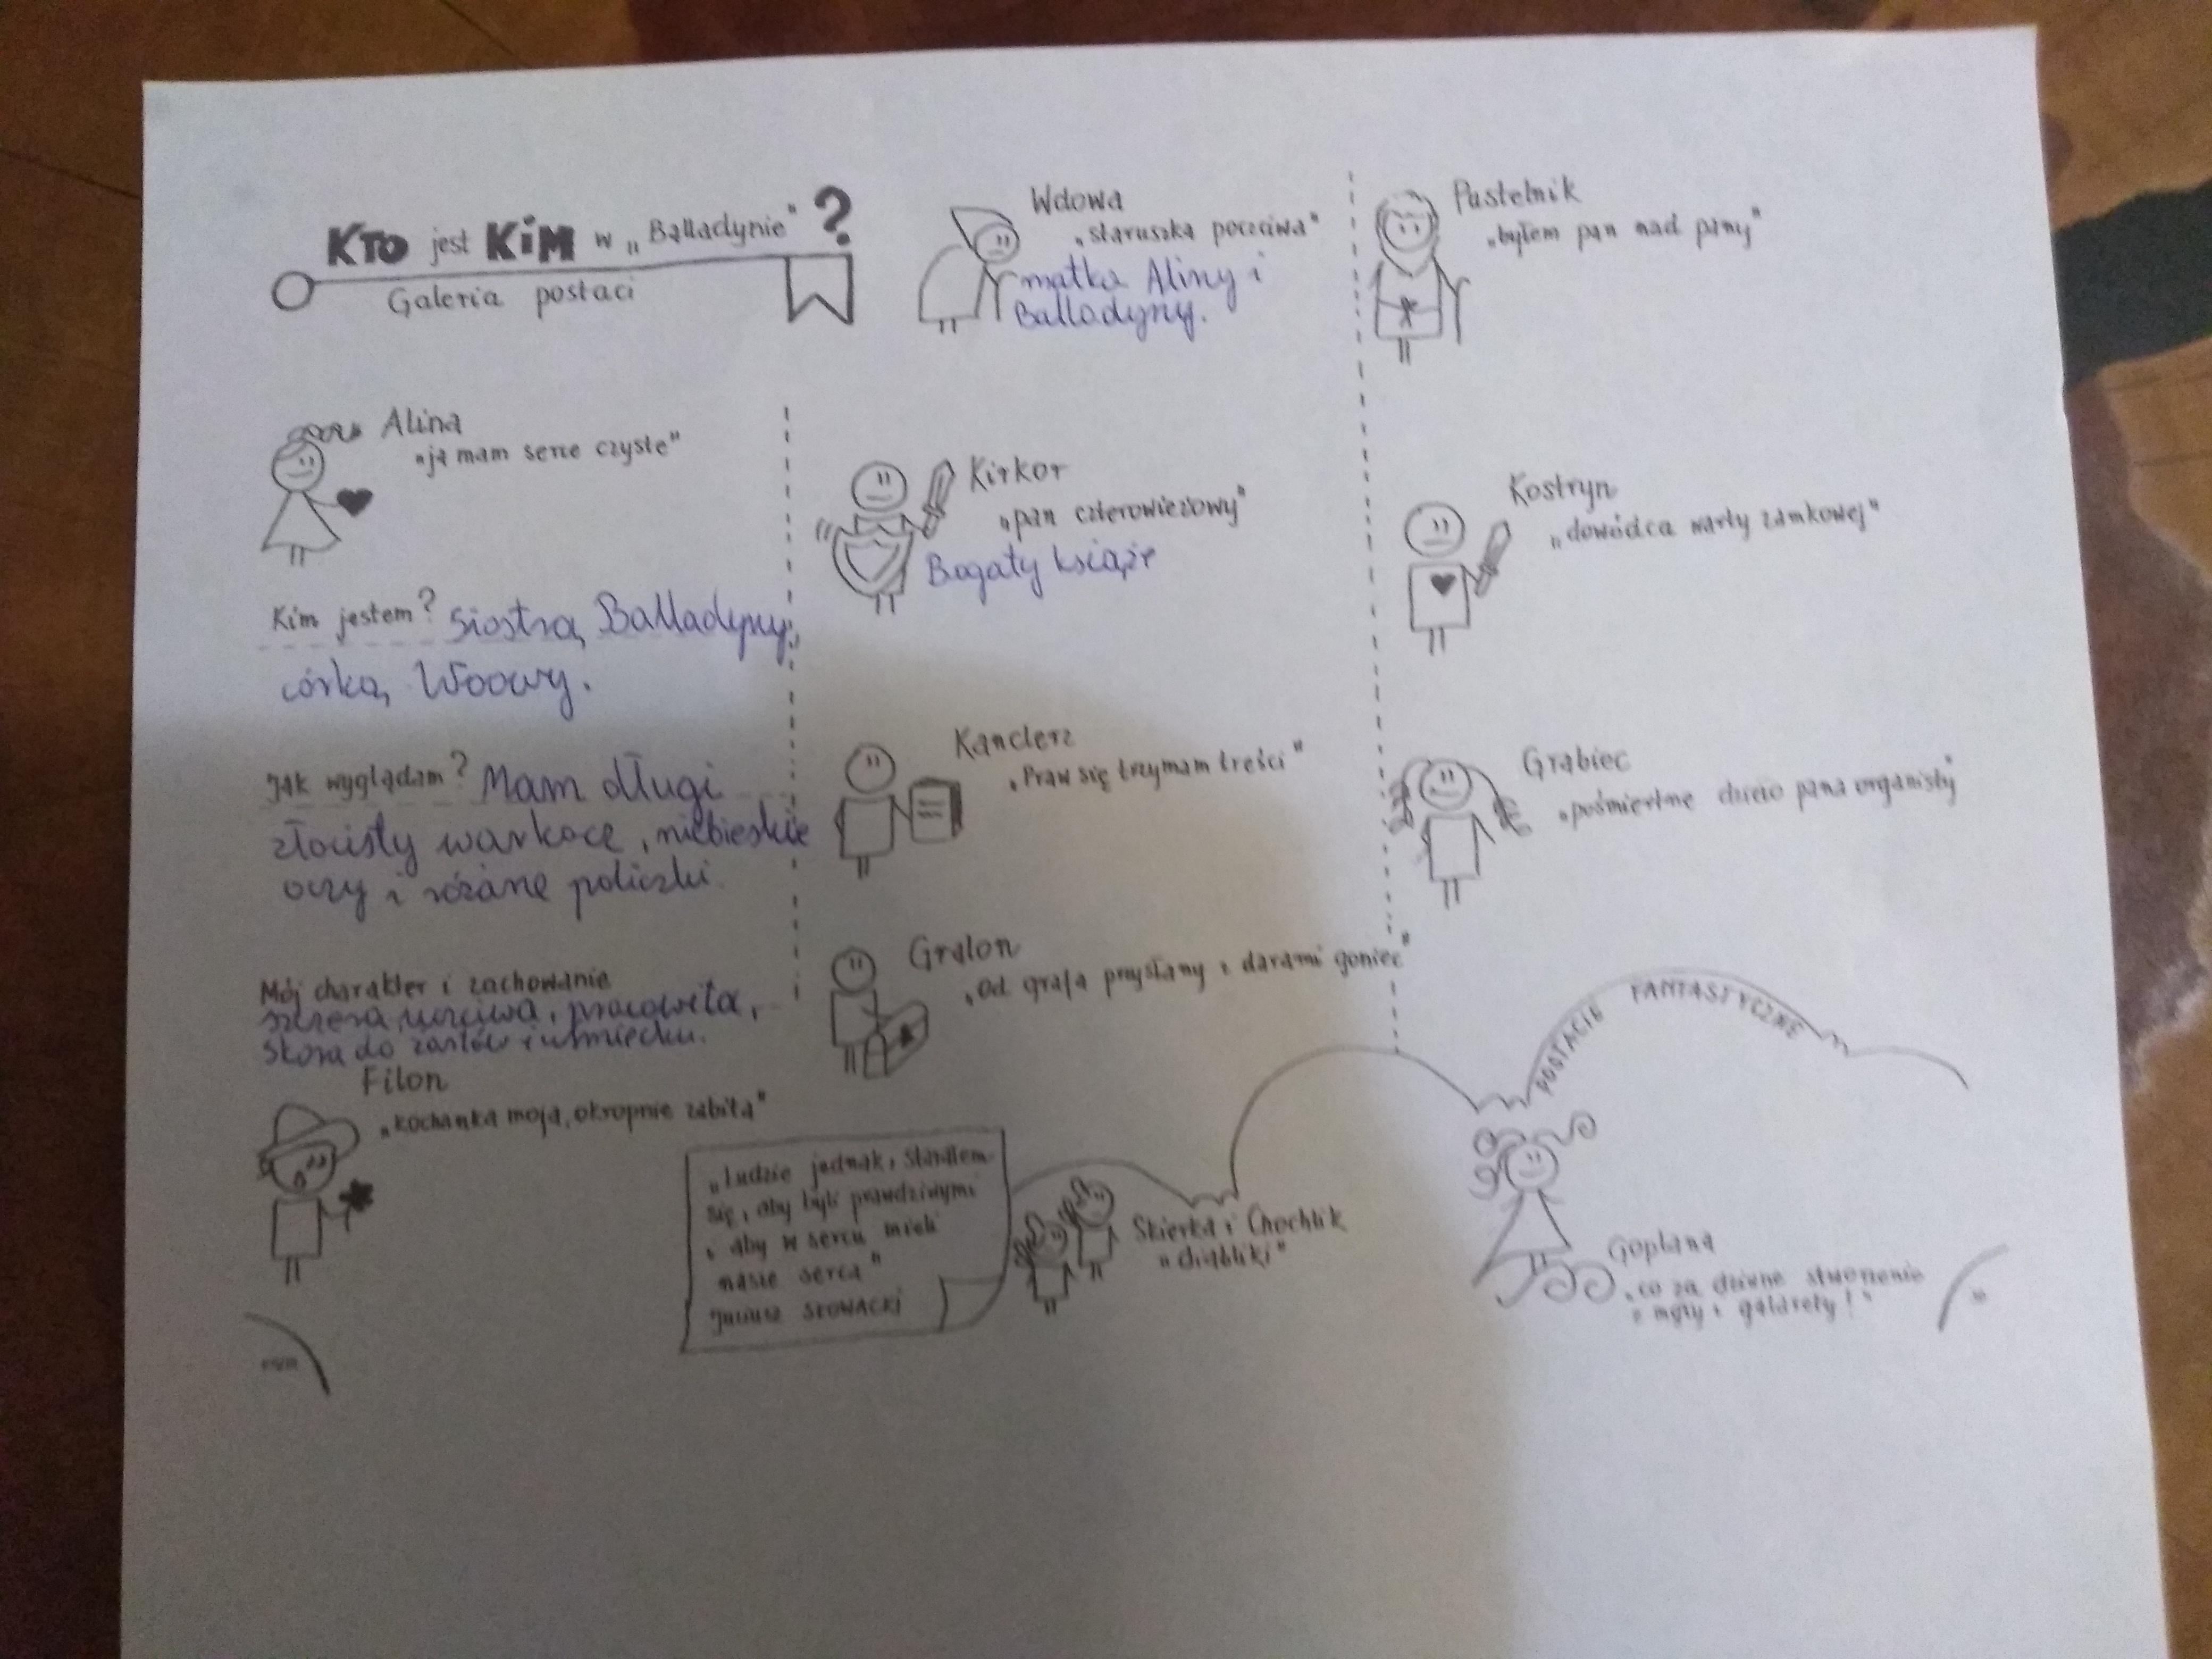 KTO jest KiM w „Balladynie" ?
Galeria postaci
Alina
„ja mam serce czyste"
Kim jestem? Siostrą Balladyny,
córką Wdowy.
Jak wyglądam? Mam długi
złocisty warkocz, niebieskie
oczy i różane policzki.
Mój charakter i zachowanie
szczera, uczciwa, pracowita,
skora do żartów i uśmiechu.
Filon
„kochanka moja, okropnie zabita"
Wdowa
„staruszka poczciwa"
matka Aliny i
Balladyny.
Kirkor
„pan czterowieżowy"
Bogaty książę
Kanclerz
„Praw się trzymam treści"
Gralon
„Od grafa przysłany z darami goniec"
„Ludzie jednak, starałem
się, aby byli prawdziwymi
i aby w sercu mieli
nasze serca"
Juliusz SŁOWACKi
Pustelnik
„byłem pan nad pany"
Kostryn
„dowódca warty zamkowej"
Grabiec
„pośmiertne dziecię pana organisty"
POSTACIE FANTASTYCZNE
Skierka i Chochlik
„diabliki"
Goplana
„co za dziwne stworzenie
z mgły i galarety!"